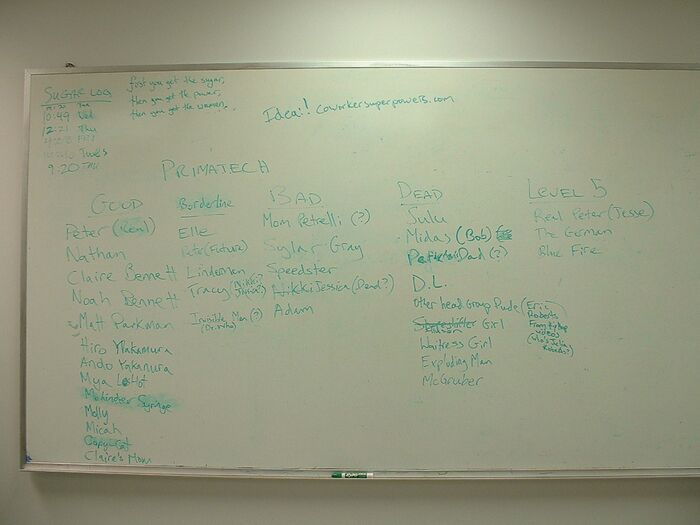 SUGAR LOG
Tue
10:49 Wed
12:21 Thu
Tues
9:20 THU
first you get the sugar,
then you get the power,
then you get the women.
Idea!! coworkersuperpowers.com
PRIMATECH
GOOD
Peter (Real)
Nathan
Claire Bennett
Noah Bennett
Matt Parkman
Hiro Yakamura
Ando Yakamura
Mya
Mohinder Syringe
Molly
Micah
Copy-Cat
Claire's Mom
Borderline
Elle
Peter (Future)
Linderman
Tracy (Nikki?
Invisible Man (?)
(Dr. Who)
BAD
Mom Petrelli (?)
Sylar Gray
Speedster
Nikki Jessica (Dead?)
Adam
DEAD
Sulu
Midas (Bob)
Dad (?)
D.L.
Other head Group Dude (Eric
Roberts
From
videos
(who's Julia
Roberts?)
Girl
Waitress Girl
Exploding Man
McGruber
LEVEL 5
Real Peter (Jesse)
The German
Blue Fire